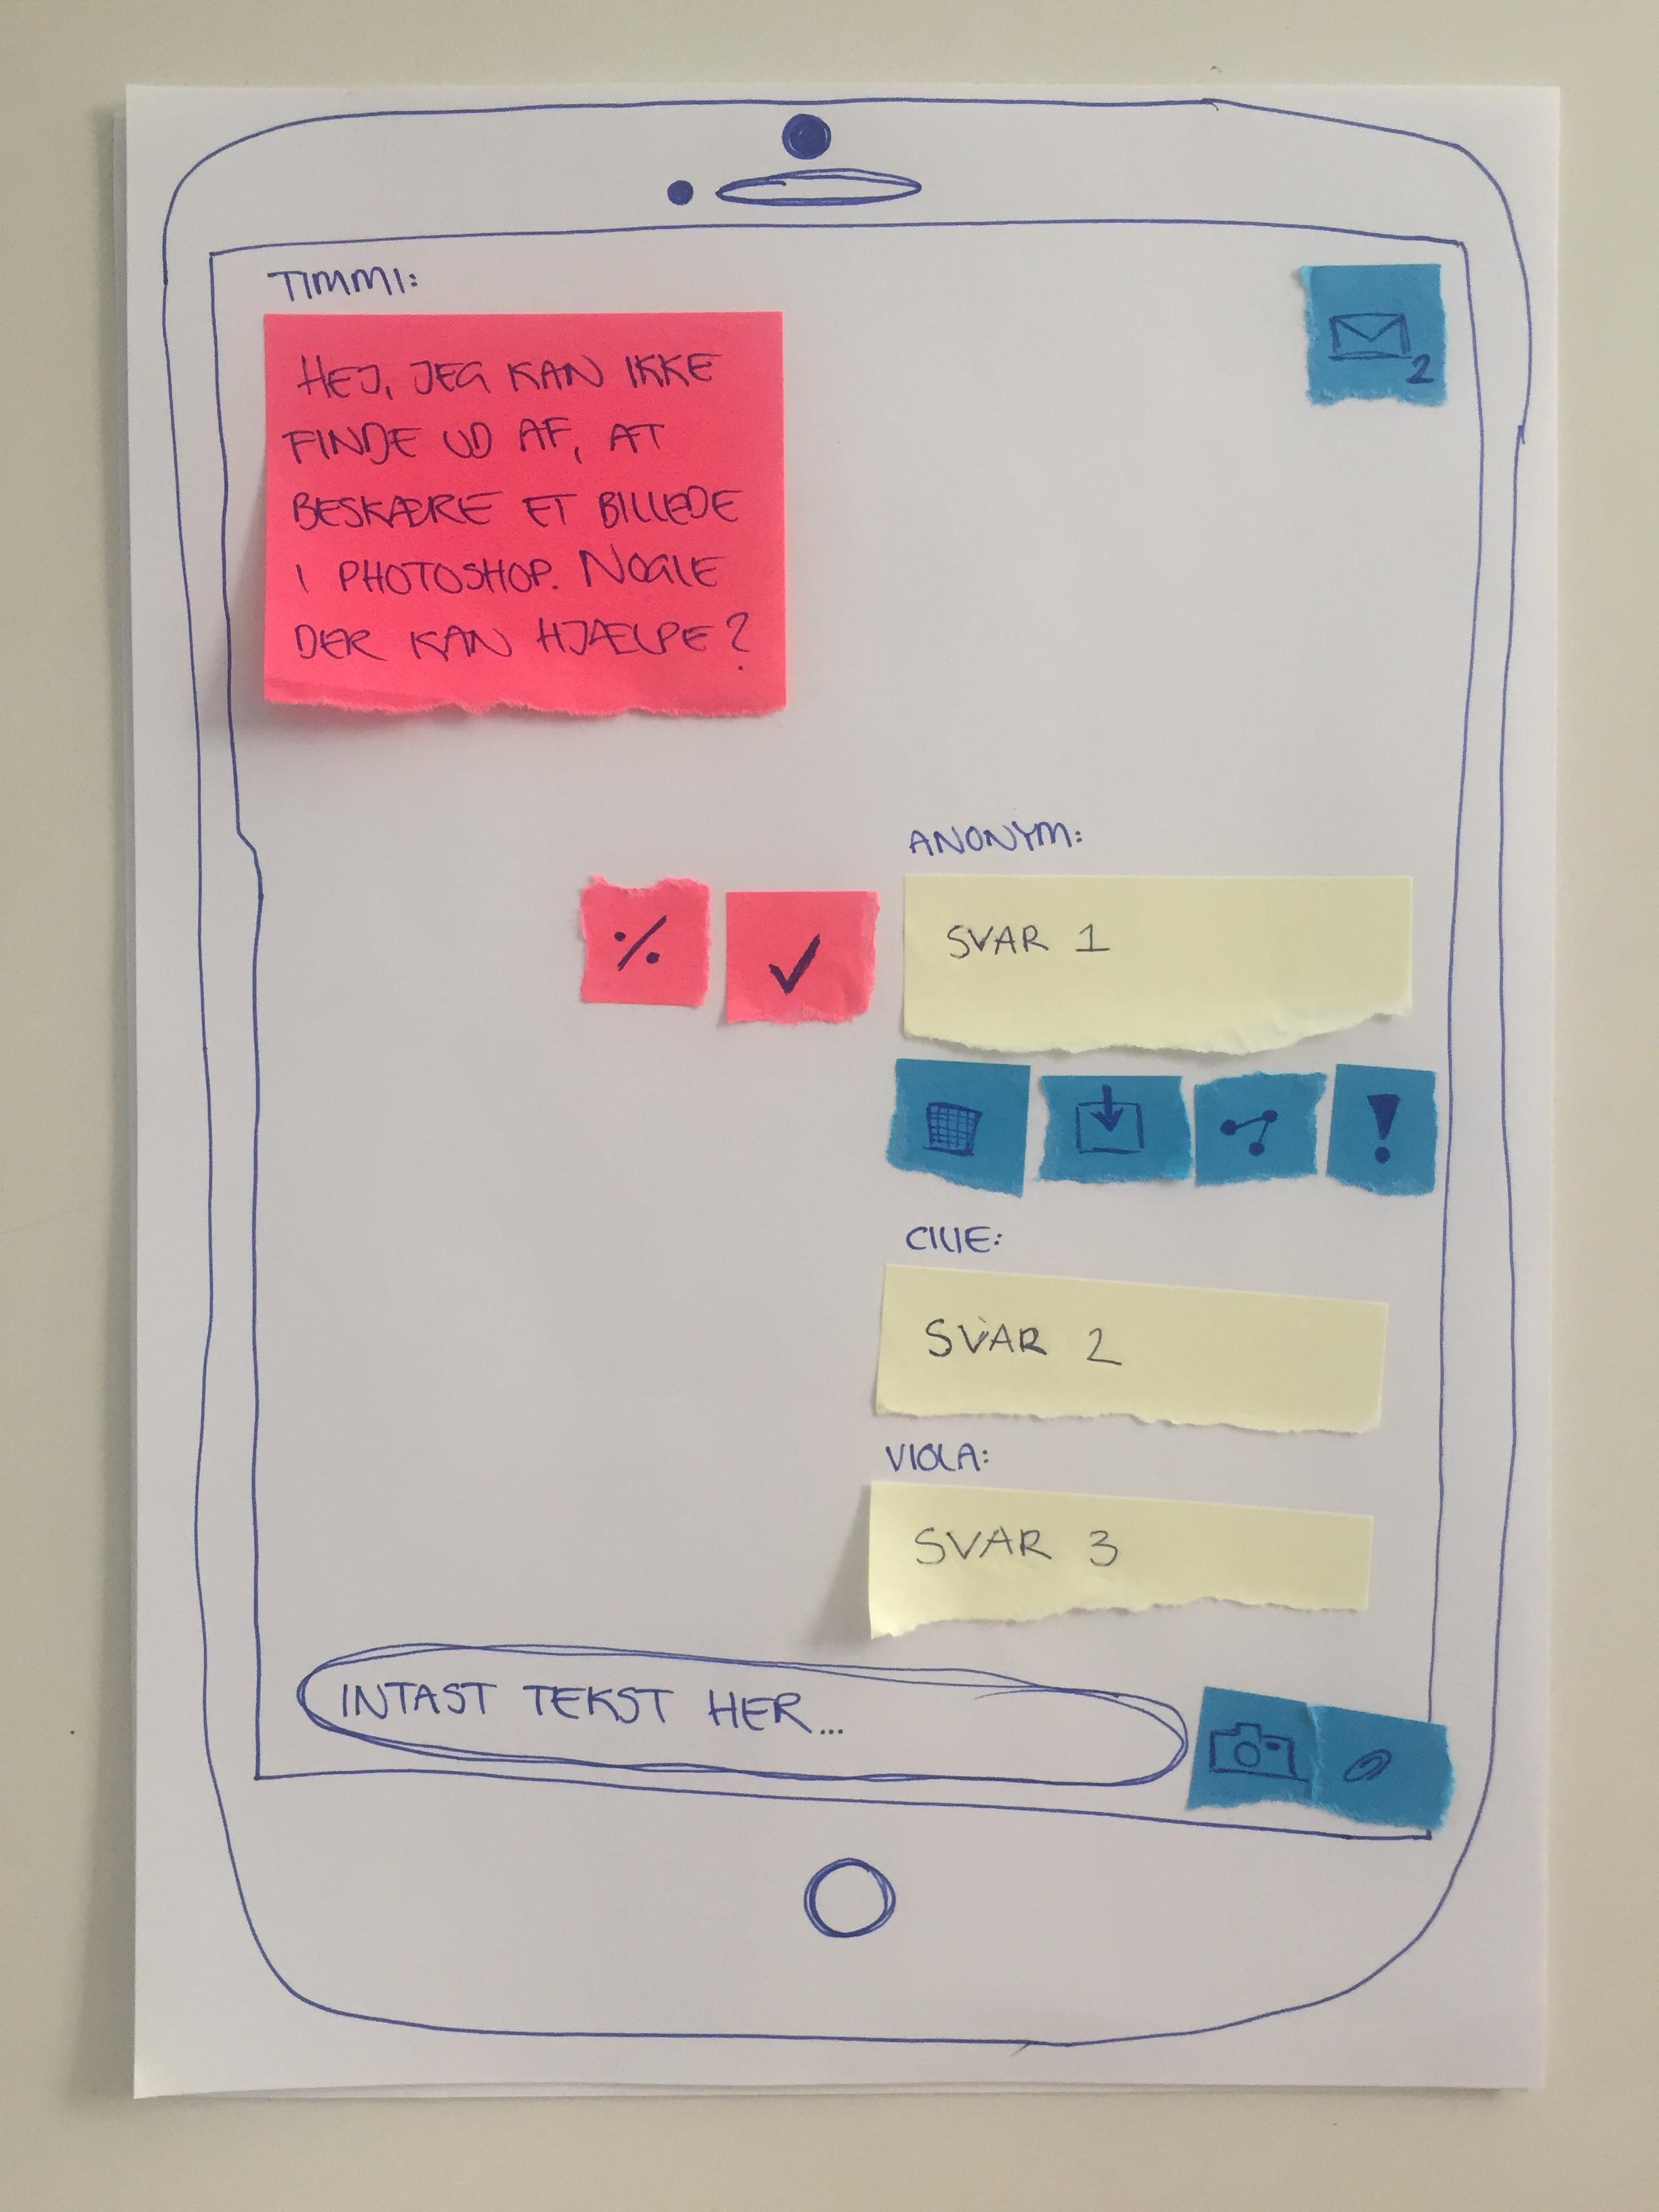 TIMMI:
HEJ, JEG KAN IKKE
FINDE UD AF, AT
BESKÆRE ET BILLEDE
I PHOTOSHOP. NOGLE
DER KAN HJÆLPE?
2
ANONYM:
% ✓
SVAR 1
!
CILIE:
SVAR 2
VIOLA:
SVAR 3
INTAST TEKST HER...